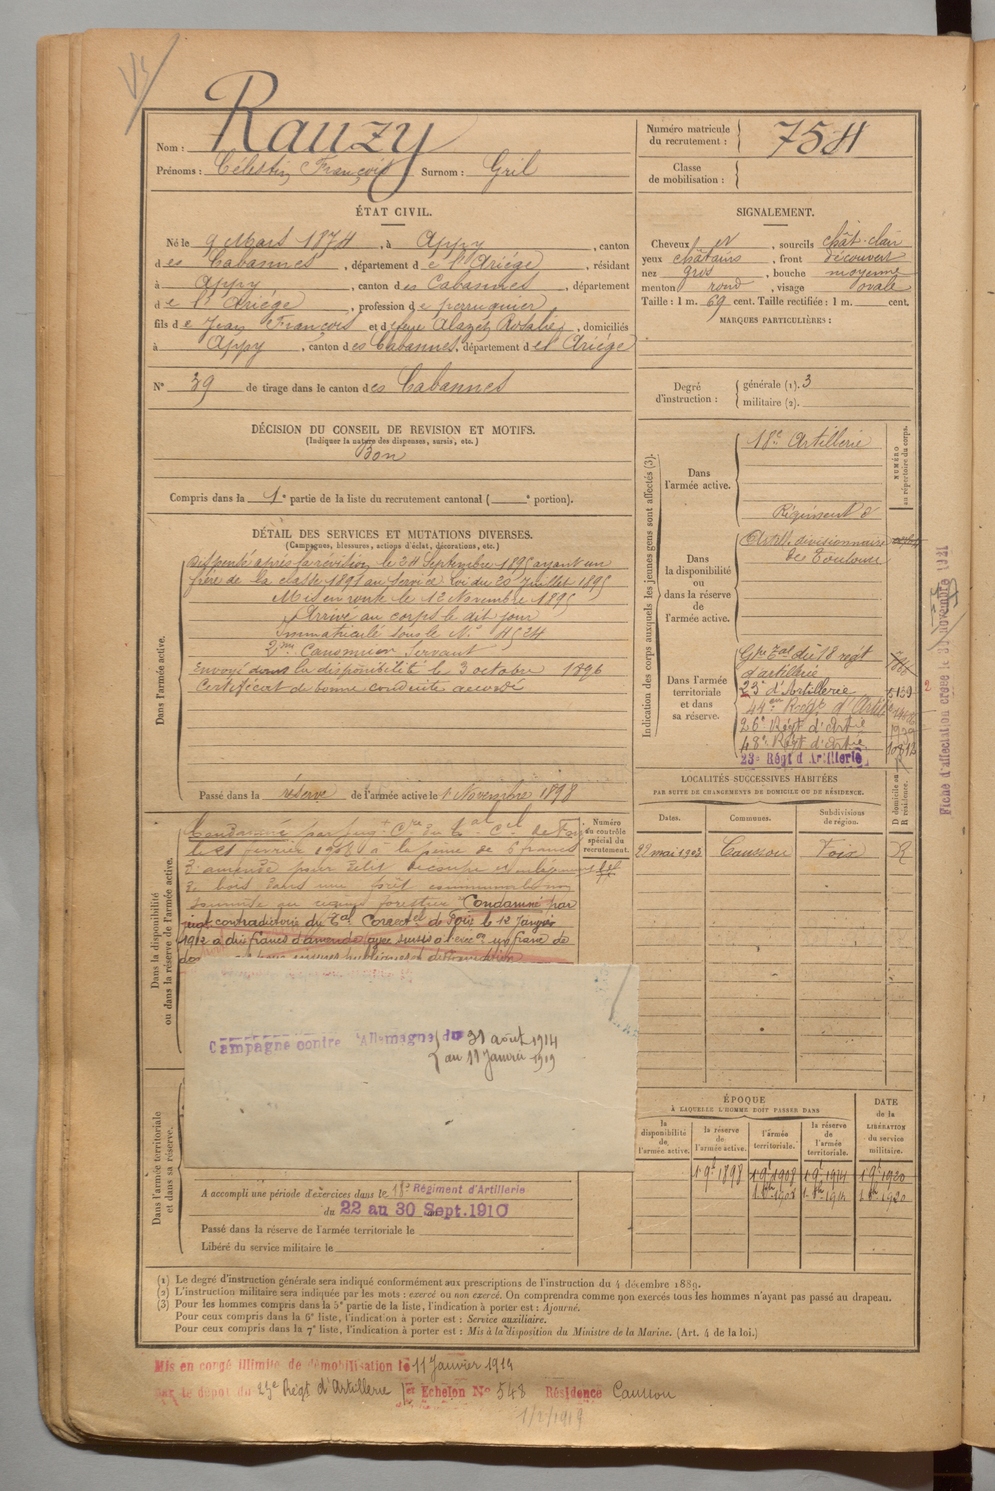 Rauzy
Nom :
Prénoms : Célestin François Surnom : Gril
Numéro matricule
du recrutement : 754
Classe
de mobilisation :
ÉTAT CIVIL.
Né le 9 Mars 1874, à Appy, canton
des Cabannes, département de l'Ariége, résidant
à Appy, canton des Cabannes, département
de l'Ariége, profession de perruquier
fils de Jean François et de feue Alazet Rosalie, domiciliés
à Appy, canton des Cabannes, département de l'Ariége
N° 39 de tirage dans le canton des Cabannes
SIGNALEMENT.
Cheveux et, sourcils chât-clair
yeux châtains, front découvert
nez gros, bouche moyenne
menton rond, visage ovale
Taille : 1 m. 69 cent. Taille rectifiée : 1 m. cent.
MARQUES PARTICULIÈRES :
Degré
d'instruction :
générale (1). 3
militaire (2).
DÉCISION DU CONSEIL DE REVISION ET MOTIFS.
(Indiquer la nature des dispenses, sursis, etc.)
Bon
Compris dans la 1e partie de la liste du recrutement cantonal ( e portion).
DÉTAIL DES SERVICES ET MUTATIONS DIVERSES.
(Campagnes, blessures, actions d'éclat, décorations, etc.)
Dans l'armée active.
Dispensé après la révision le 24 Septembre 1895 ayant un
frère de la classe 1891 au service loi du 20 Juillet 1895
Mis en route le 12 Novembre 1895
Arrivé au corps le dit jour
Immatriculé sous le N° 4524
2me Canonnier Servant
Envoyé dans la disponibilité le 3 octobre 1896
Certificat de bonne conduite accordé
Passé dans la réserve de l'armée active le 1 Novembre 1898
Indication des corps auxquels les jeunes gens sont affectés (3).
NUMÉRO
au répertoire du corps.
Dans
l'armée active.
18e Artillerie
Dans
la disponibilité
ou
dans la réserve
de
l'armée active.
Régiment d'
Artie divisionnaire
de Toulouse
Dans l'armée
territoriale
et dans
sa réserve.
Gpe Tal du 18 régt
d'artillerie
23e d'Artillerie 5139
44e Régt d'Artie
26e Régt d'Artie
48e Régt d'Artie 10812
23e Régt d'Artillerie
Fiche d'affectation créée le novembre 1921
LOCALITÉS SUCCESSIVES HABITÉES
PAR SUITE DE CHANGEMENTS DE DOMICILE OU DE RÉSIDENCE.
Dates. Communes. Subdivisions
de région.
D domicile ou
R résidence.
22 mai 1903 Caussou Foix R
Numéro
du contrôle
spécial du
recrutement.
Dans la disponibilité
ou dans la réserve de l'armée active.
Condamné par jugt Cre du Tal Cel de Foix
le 21 février 1908 à la peine de 6 francs
d'amende pour délit de coupe et enlèvement
de bois dans une forêt communale non
soumise au régime forestier Condamné par
jugt contradictoire du Tal Correctel de Foix le 12 Janvier
1912 à dix francs d'amende avec sursis
Campagne contre l'Allemagne du 31 août 1914
au 11 Janvier 1919
Dans l'armée territoriale
et dans sa réserve.
A accompli une période d'exercices dans le 18e Régiment d'Artillerie
du 22 au 30 Sept. 1910
Passé dans la réserve de l'armée territoriale le
Libéré du service militaire le
ÉPOQUE
À LAQUELLE L'HOMME DOIT PASSER DANS
DATE
de la
LIBÉRATION
du service
militaire.
la
disponibilité
de
l'armée active.
la réserve
de
l'armée active.
l'armée
territoriale.
la réserve
de
l'armée
territoriale.
1 9e 1898 1 9e 1908 1 9e 1914 1 9e 1920
1 8bre 1908 1 8bre 1914 1 8bre 1920
(1) Le degré d'instruction générale sera indiqué conformément aux prescriptions de l'instruction du 4 décembre 1889.
(2) L'instruction militaire sera indiquée par les mots : exercé ou non exercé. On comprendra comme non exercés tous les hommes n'ayant pas passé au drapeau.
(3) Pour les hommes compris dans la 5e partie de la liste, l'indication à porter est : Ajourné.
Pour ceux compris dans la 6e liste, l'indication à porter est : Service auxiliaire.
Pour ceux compris dans la 7e liste, l'indication à porter est : Mis à la disposition du Ministre de la Marine. (Art. 4 de la loi.)
Mis en congé illimité de démobilisation le 11 Janvier 1919
par le dépôt du 23e Régt d'Artillerie Echelon N° 548 Résidence Caussou
1/2/1919